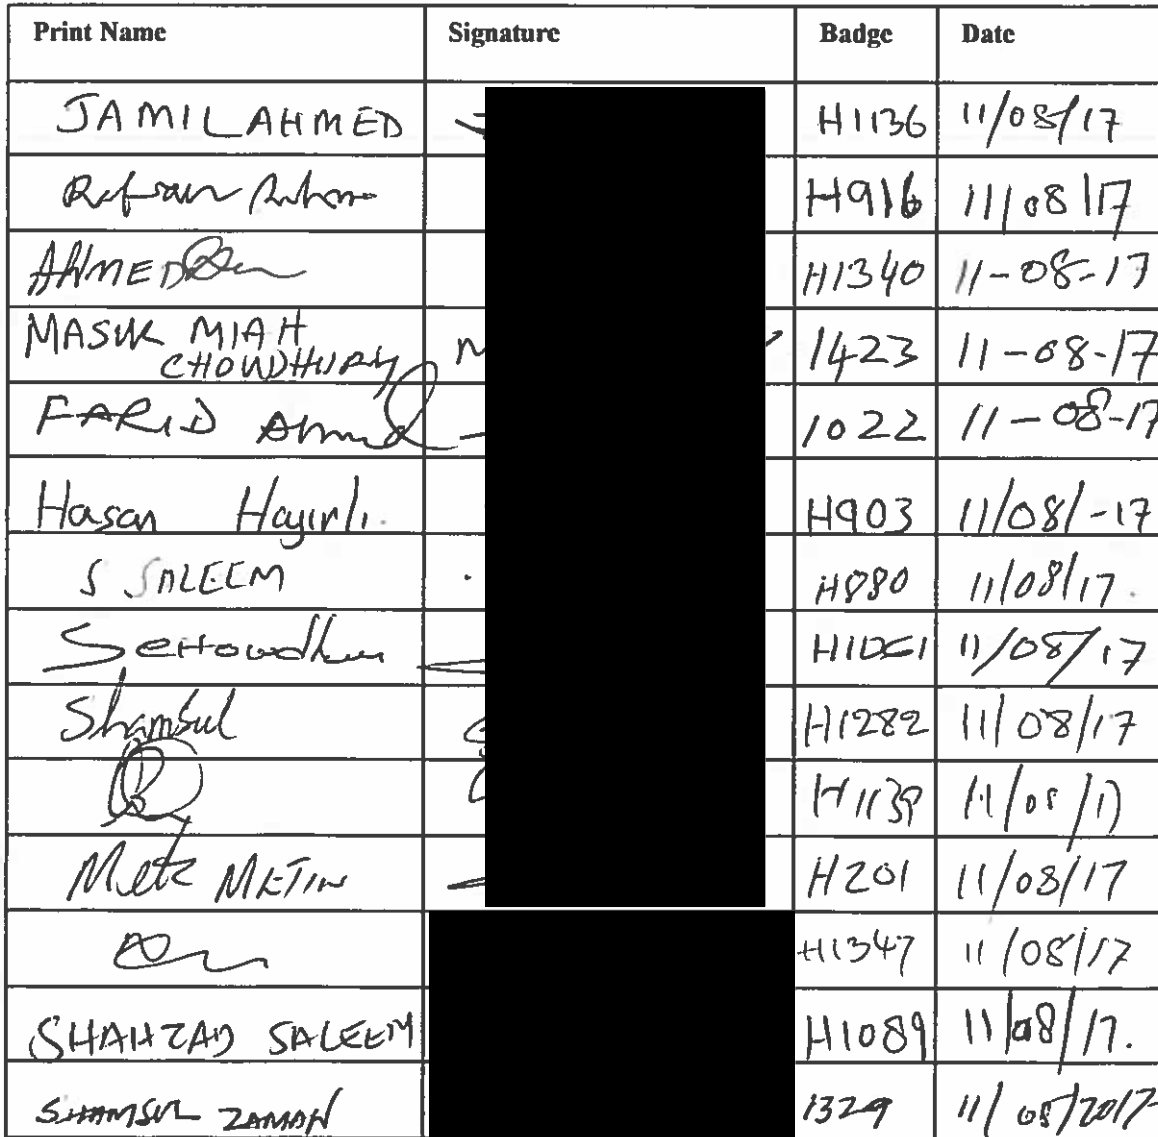 Print Name Signature Badge Date
JAMIL AHMED H1136 11/08/17
H916 11/08/17
AHMED H1340 11-08-17
MASUK MIAH
CHOWDHURY M 1423 11-08-17
FARID Ahmed 1022 11-08-17
Hasan Hayirli. H903 11/08/-17
S SALEEM H880 11/08/17.
H1061 11/08/17
Shamsul H1282 11/08/17
H1139 11/08/17
METIN H201 11/08/17
H1347 11/08/17
SHAHZAD SALEEM H1089 11/08/17.
SHAMSUL ZAMAN 1329 11/08/2017